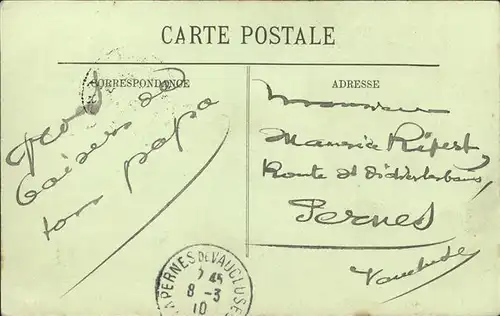 CARTE POSTALE
CORRESPONDANCE
ADRESSE
baisers de
ton papa
Monsieur
Maurice Ripert
Route St
Pernes
Vaucluse
PERNES DE VAUCLUSE
7 45
8 - 3
10